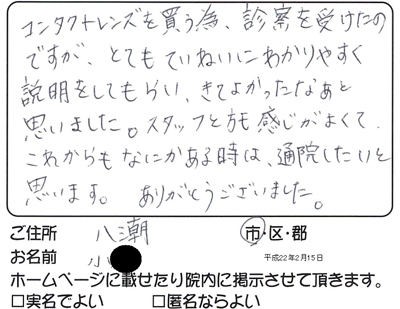 コンタクトレンズを買う為、診察を受けたの
ですが、とてもていねいにわかりやすく
説明をしてもらい、きてよかったなあと
思いました。スタッフも感じがよくて、
これからもなにかある時は、通院したいと
思います。 ありがとうございました。
ご住所 八潮 市・区・郡
お名前 小 平成22年2月15日
ホームページに載せたり院内に掲示させて頂きます。
□実名でよい □匿名ならよい